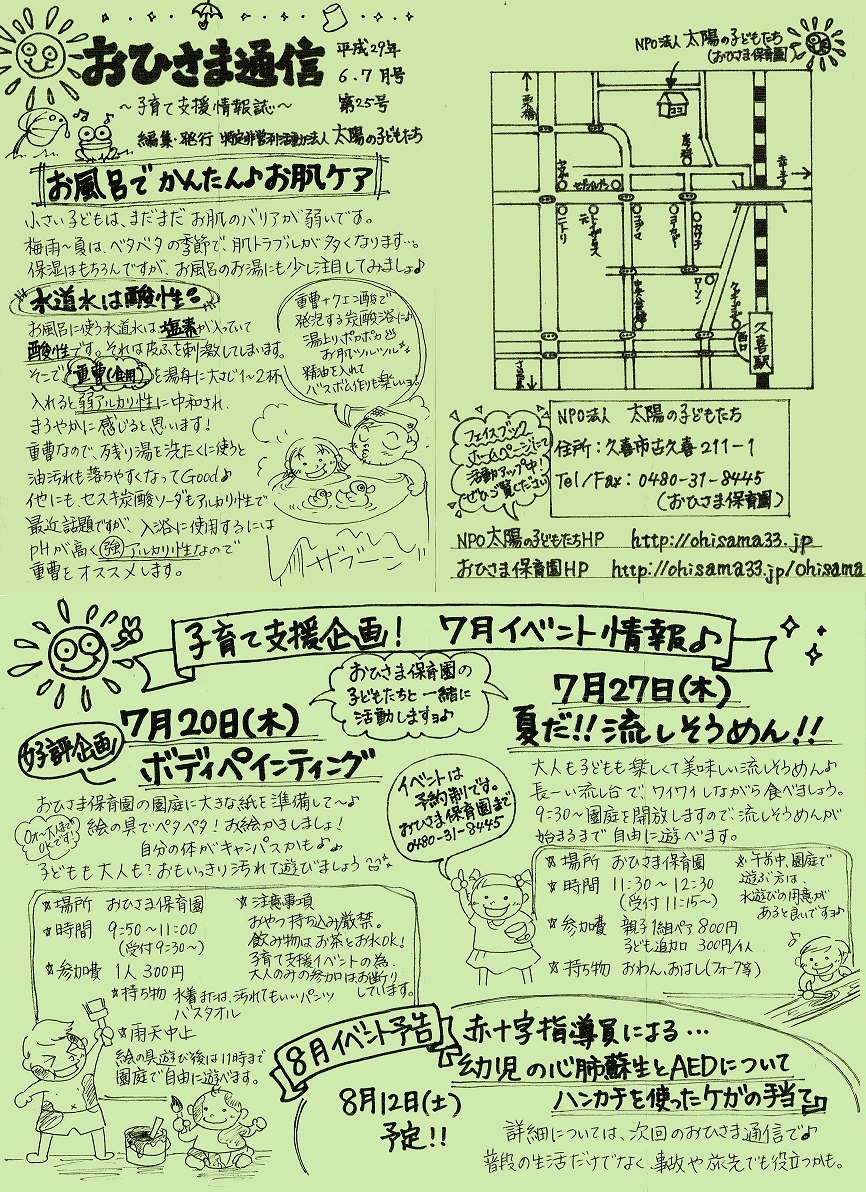 おひさま通信
平成29年
6.7月号
第25号
～子育て支援情報誌～
編集・発行 特定非営利活動法人 太陽の子どもたち
お風呂でかんたん♪お肌ケア
小さい子どもは、まだまだお肌のバリアが弱いです。
梅雨～夏は、ベタベタの季節で、肌トラブルが多くなります…。
保湿はもちろんですが、お風呂のお湯にも少し注目してみましょ♪
水道水は酸性
お風呂に使う水道水は、塩素が入っていて
酸性です。それは皮ふを刺激してしまいます。
そこで重曹(食用)を湯舟に大さじ1～2杯
入れると弱アルカリ性に中和され、
まろやかに感じると思います！
重曹なので、残り湯を洗たくに使うと
油汚れも落ちやすくなってGood♪
他にも、セスキ炭酸ソーダもアルカリ性で
最近話題ですが、入浴に使用するには
pHが高く強アルカリ性なので
重曹をオススメします。
重曹＋クエン酸で
発泡する炭酸浴に♪
湯上りポカポカ
お肌ツルツル
精油を入れて
バスボム作りも楽しいョ♪
ザブーン
NPO法人 太陽の子どもたち
(おひさま保育園)
ココ
栗橋
幸手
セブンイレブン
ニトリ
トイザらス
コジマ
ヨーカドー
カワチ
ローソン
久喜駅
西口
フェイスブック
ホームページにて
活動アップ中！
ぜひご覧ください
NPO法人 太陽の子どもたち
住所：久喜市古久喜211-1
Tel/Fax：0480-31-8445
(おひさま保育園)
NPO太陽の子どもたちHP http://ohisama33.jp
おひさま保育園HP http://ohisama33.jp/ohisama
子育て支援企画！ 7月イベント情報♪
おひさま保育園の
子どもたちと一緒に
活動しますョ♪
好評企画
7月20日(木)
ボディペインティング
おひさま保育園の園庭に大きな紙を準備して～♪
絵の具でペタペタ！お絵かきしましょ！
自分の体がキャンバスかも♪♪
子どもも大人も？おもいっきり汚れて遊びましょう
0才～大人まで
OKです！
☆場所 おひさま保育園
☆時間 9:50～11:00
(受付9:30～)
☆参加費 1人300円
☆持ち物 水着または、汚れてもいいパンツ
バスタオル
☆雨天中止
絵の具遊び後は11時まで
園庭で自由に遊べます。
☆注意事項
おやつ持ち込み厳禁。
飲み物はお茶とお水OK！
子育て支援イベントの為、
大人のみの参加はお断り
しています。
イベントは
予約制です。
おひさま保育園まで
0480-31-8445
7月27日(木)
夏だ!!流しそうめん!!
大人も子どもも楽しくて美味しい流しそうめん♪
長ーい流し台で、ワイワイしながら食べましょう。
9:30～園庭を開放しますので、流しそうめんが
始まるまで自由に遊べます。
☆場所 おひさま保育園
☆時間 11:30～12:30
(受付11:15～)
☆参加費 親子1組ペア800円
子ども追加 300円/1人
☆持ち物 おわん、おはし(フォーク等)
☆午前中、園庭で
遊ぶ方は、
水遊びの用意が
あると良いですョ♪
8月イベント予告
8月12日(土)
予定!!
赤十字指導員による…
幼児の心肺蘇生とAEDについて
ハンカチを使ったケガの手当て♪
詳細については、次回のおひさま通信で♪
普段の生活だけでなく、事故や旅先でも役立つかも。